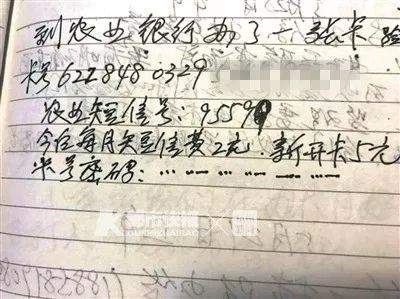 到农业银行办了一张卡
卡号622848 0329
农业短信号:95599
今后每月短信费2元.新开卡5元
卡号密码:
都市快报